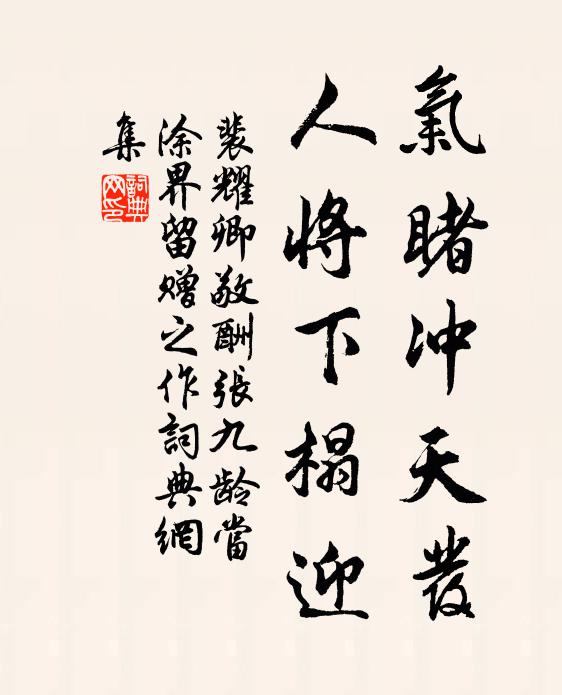 氣睹沖天發
人將下榻迎
裴耀卿敬酬張九齡當
涂界留贈之作詞典網
集
詞典網印